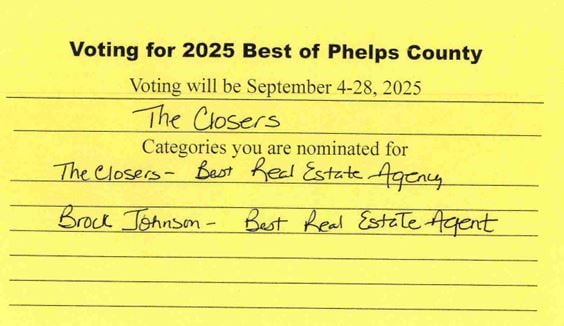 Voting for 2025 Best of Phelps County
Voting will be September 4-28, 2025
The Closers
Categories you are nominated for
The Closers - Best Real Estate Agency
Brock Johnson - Best Real Estate Agent